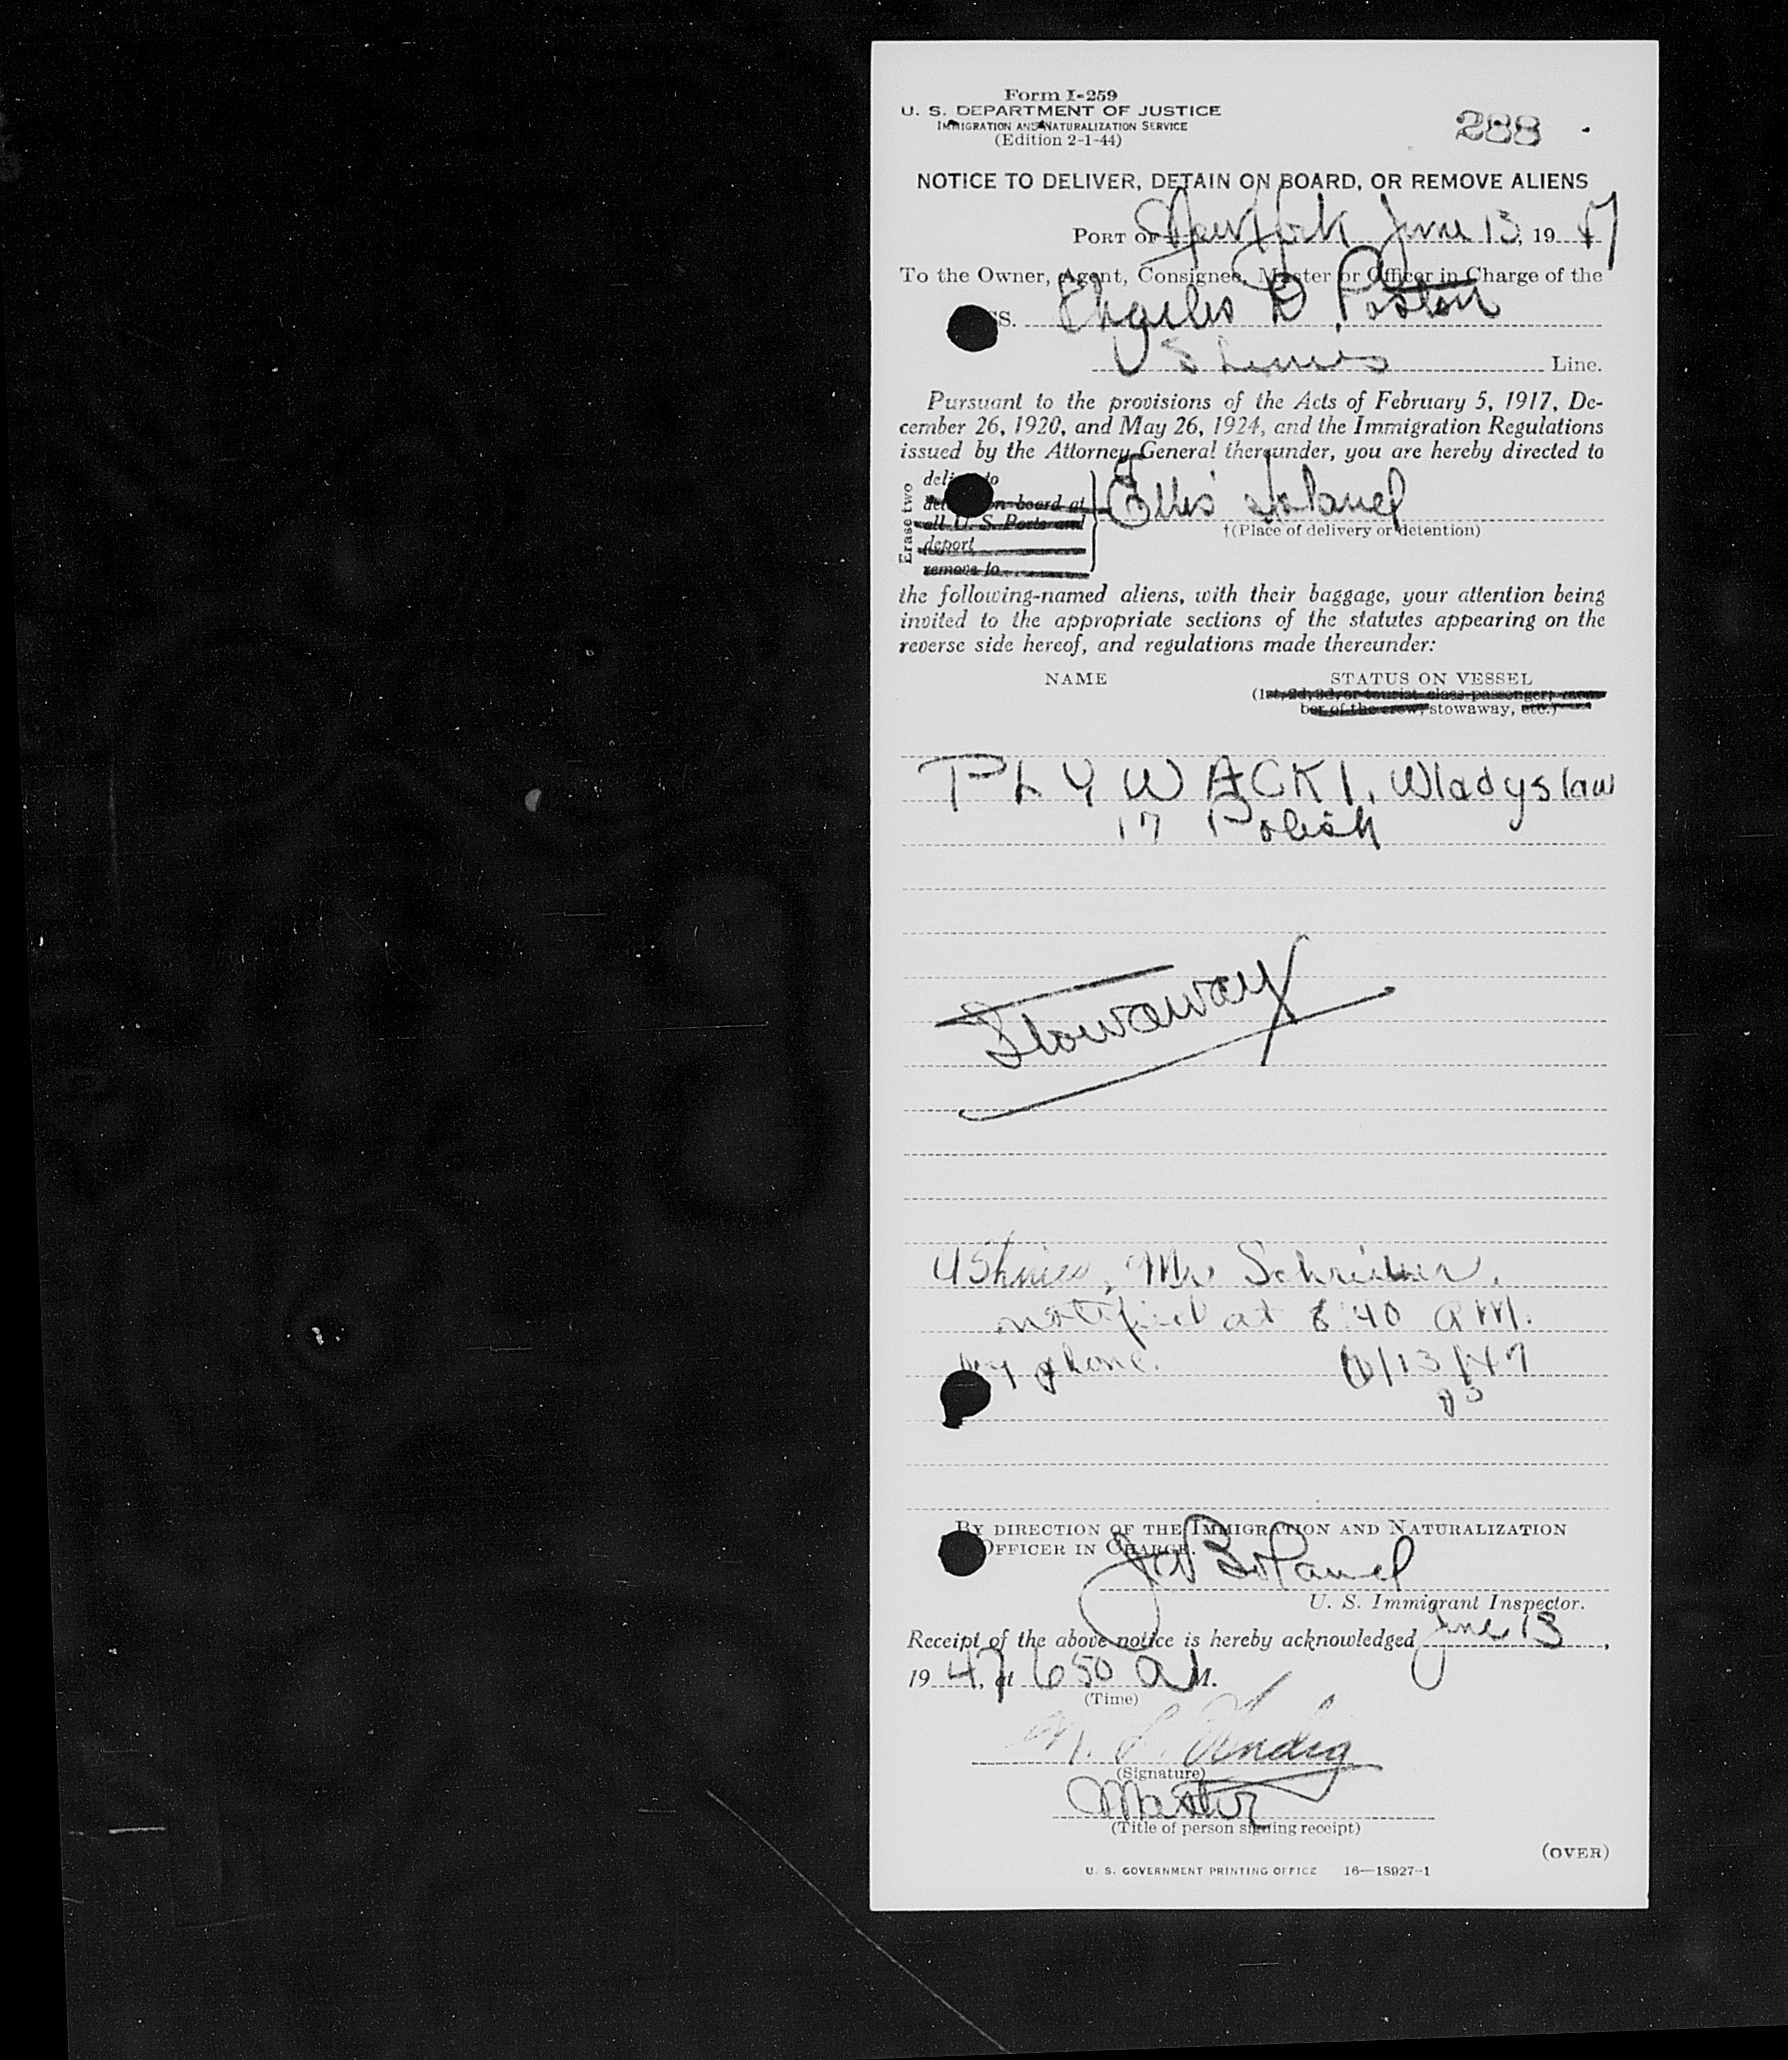 Form I-259
U. S. DEPARTMENT OF JUSTICE
IMMIGRATION AND NATURALIZATION SERVICE
(Edition 2-1-44)
288
NOTICE TO DELIVER, DETAIN ON BOARD, OR REMOVE ALIENS
PORT OF New York June 13, 1947
To the Owner, Agent, Consignee, Master or Officer in Charge of the
SS. Charles D Poston
U S Lines Line.
Pursuant to the provisions of the Acts of February 5, 1917, De-
cember 26, 1920, and May 26, 1924, and the Immigration Regulations
issued by the Attorney General thereunder, you are hereby directed to
Erase two
deliver to
detain on board at
all U. S. Ports and
deport
remove to
Ellis Island
†(Place of delivery or detention)
the following-named aliens, with their baggage, your attention being
invited to the appropriate sections of the statutes appearing on the
reverse side hereof, and regulations made thereunder:
NAME STATUS ON VESSEL
(1st, 2d, 3d, or tourist class passenger, mem-
ber of the crew, stowaway, etc.)
PLYWACKI, Wladyslaw
17 Polish
Stowaway
U S Lines, Mr Schreiber,
notified at 8:40 AM.
by phone. 6/13/47
BY DIRECTION OF THE IMMIGRATION AND NATURALIZATION
OFFICER IN CHARGE.
U. S. Immigrant Inspector.
Receipt of the above notice is hereby acknowledged June 13,
1947, at 6 50 A M.
(Time)
M. L.
(Signature)
Master
(Title of person signing receipt)
(OVER)
U. S. GOVERNMENT PRINTING OFFICE 16—18927-1